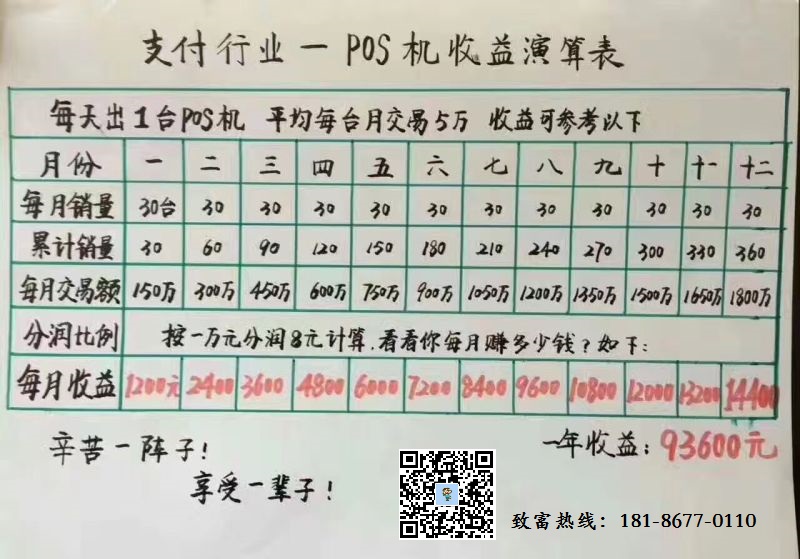 支付行业一POS机收益演算表
每天出1台POS机 平均每台月交易5万 收益可参考以下
月份 一 二 三 四 五 六 七 八 九 十 十一 十二
每月销量 30台 30 30 30 30 30 30 30 30 30 30 30
累计销量 30 60 90 120 150 180 210 240 270 300 330 360
每月交易额 150万 300万 450万 600万 750万 900万 1050万 1200万 1350万 1500万 1650万 1800万
分润比例 按一万元分润8元计算.看看你每月赚多少钱?如下:
每月收益 1200元 2400 3600 4800 6000 7200 8400 9600 10800 12000 13200 14400
辛苦一阵子!
一年收益:93600元
享受一辈子!
致富热线:181-8677-0110